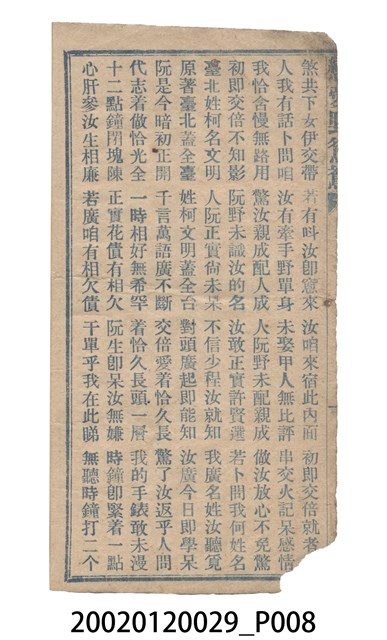 煞共下女伊交帶 若有呌汝卽愈來 汝咱來宿此內面 初卽交倍就者
人我有話卜問咱 汝有牽手野單身 未娶甲人無比評 串交火記呆感情
我恰舍慢無路用 驚汝親成配人成 人阮野未配親成 做汝放心不免驚
初卽交倍不知影 阮野未識汝的名 汝敢正實許賢選 若卜問我何姓名
臺北姓柯名文明 人阮正實尙未呆 不信少程汝就知 我廣名姓汝聽覓
原著臺北蓋全臺 姓柯文明蓋全台 對頭廣起卽能知 汝廣今日卽學呆
阮是今暗初正開 千言萬語廣不斷 交倍愛着恰久長 驚了汝返乎人問
代志着做恰光全 一時相好無希罕 着恰久長頭一層 我的手錶敢未漫
十二點鐘閉塊陳 正實花債有相欠 阮生卽呆汝無嫌 時鐘卽緊着一點
心肝參汝生相廉 若廣咱有相欠債 干單乎我在此睇 無聽時鐘打二个
20020120029_P008